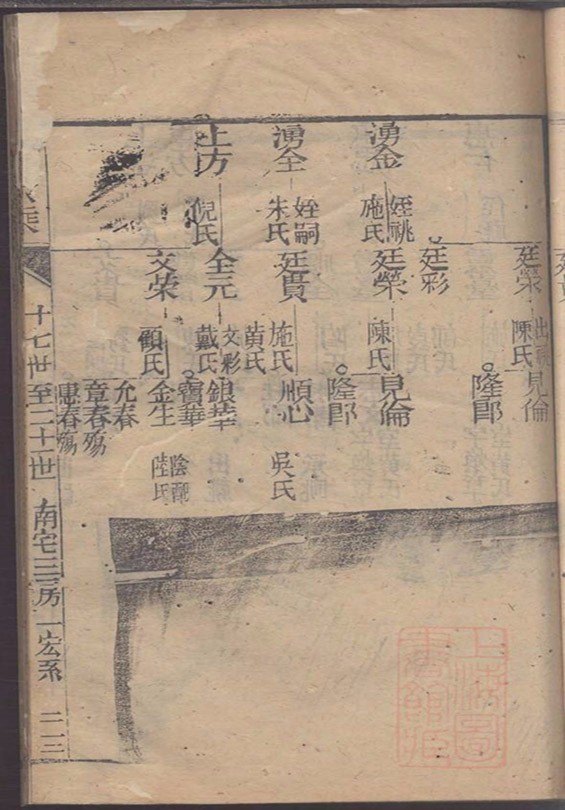 廷榮
出祧
陳氏
見倫
隆郎
廷彩
湧金
姪祧
施氏
廷榮
陳氏
見倫
隆郎
湧全
姪嗣
朱氏
廷貴
施氏
黄氏
順心
吳氏
上方
倪氏
全元
文彩
戴氏
銀華
寶華
文荣
顧氏
金生
陰配
陸氏
允春
章春殤
惠春殤
十七世至二十一世
南宅三房一宏系
二三
上海圖書館藏